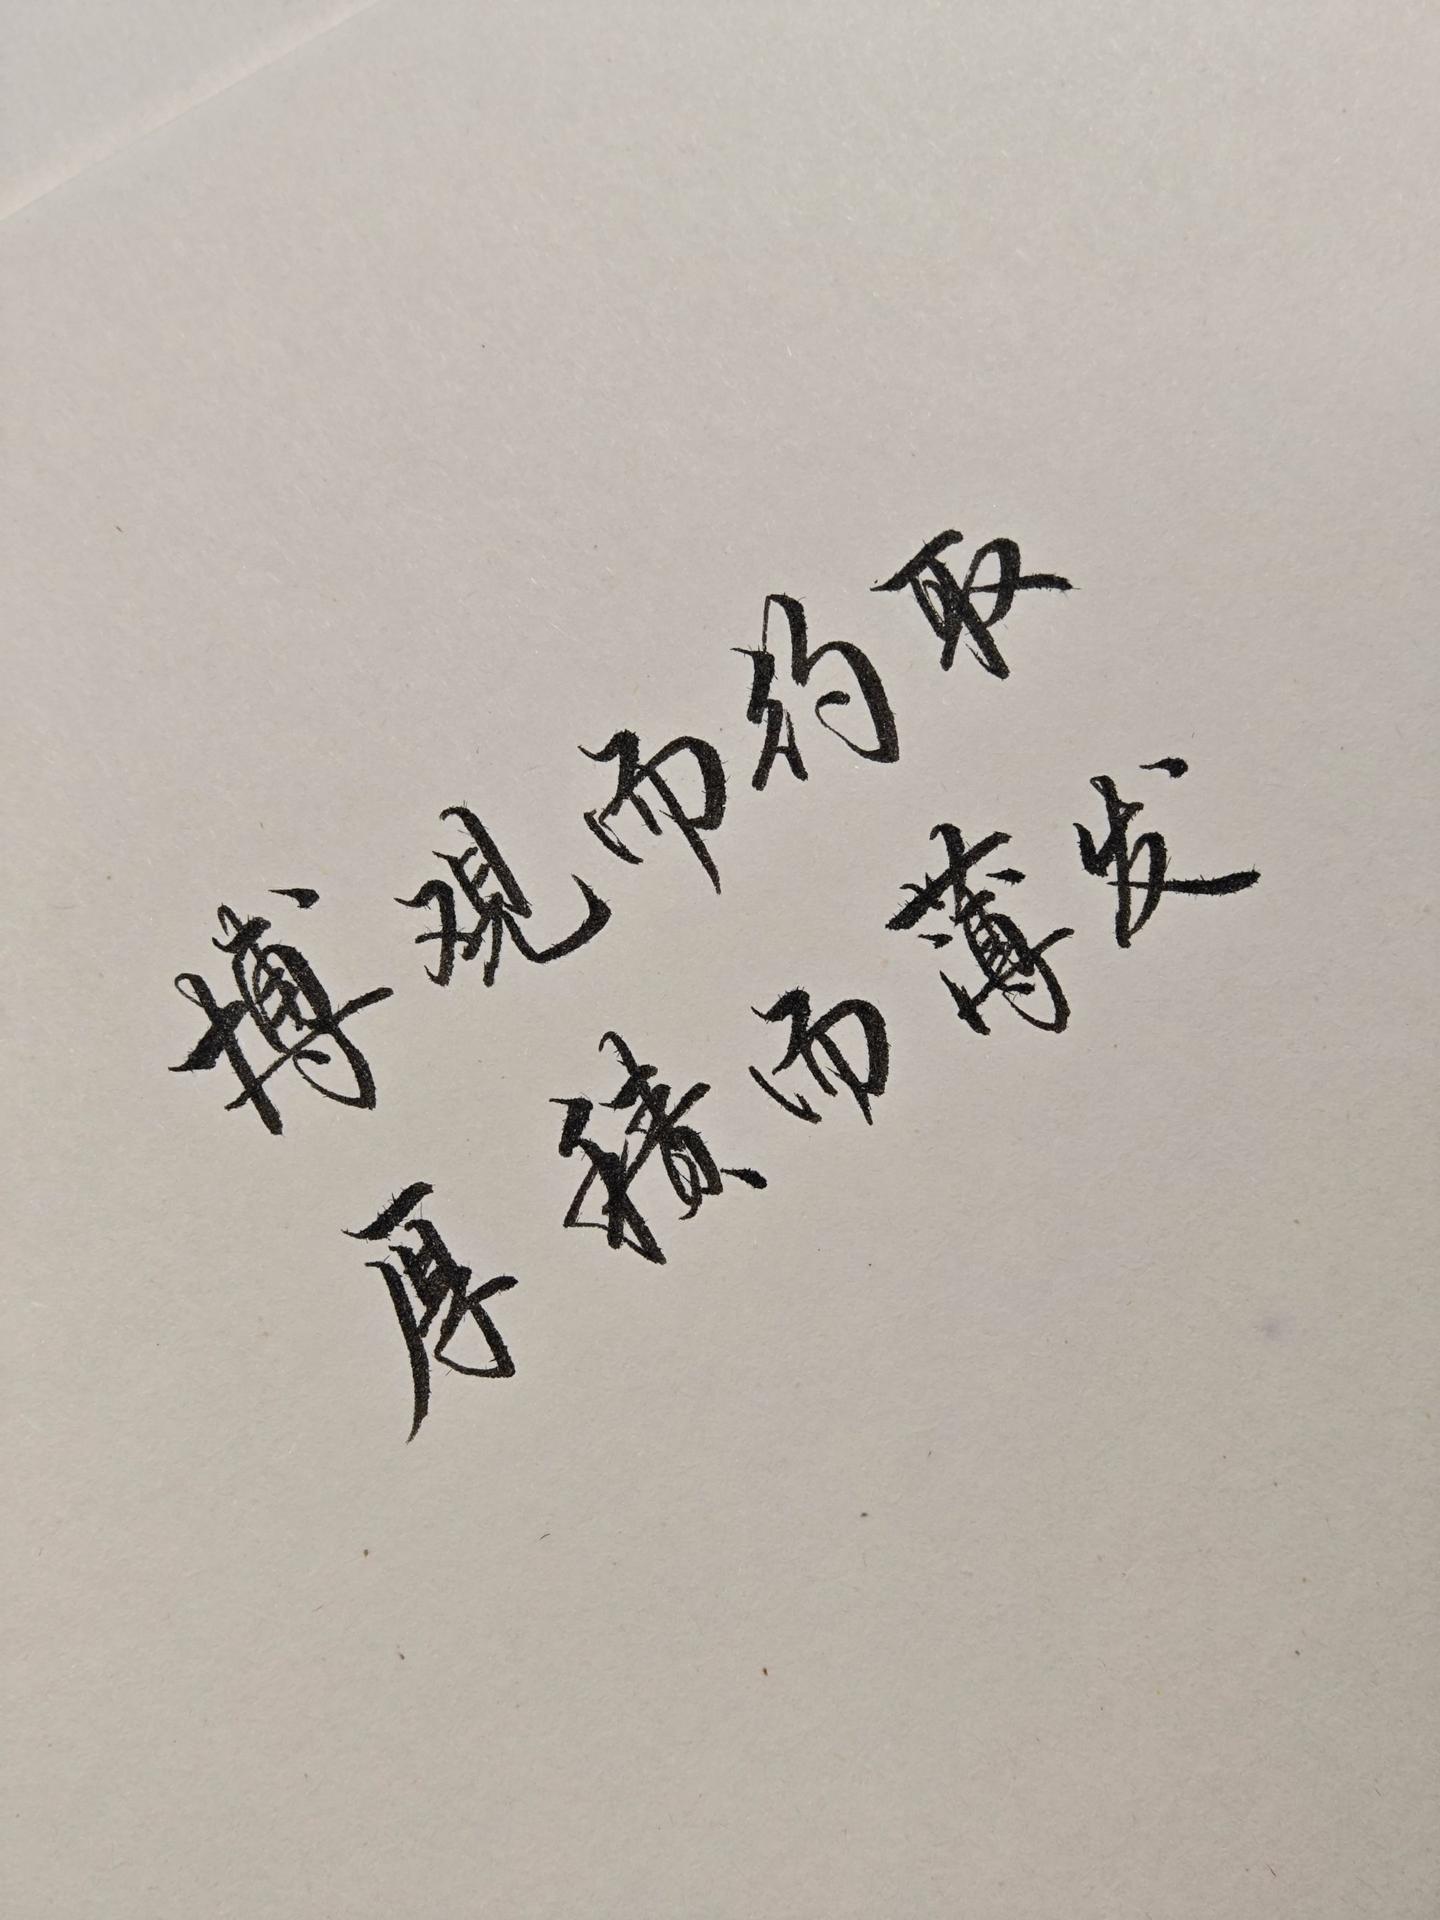 博观而约取
厚積而薄发